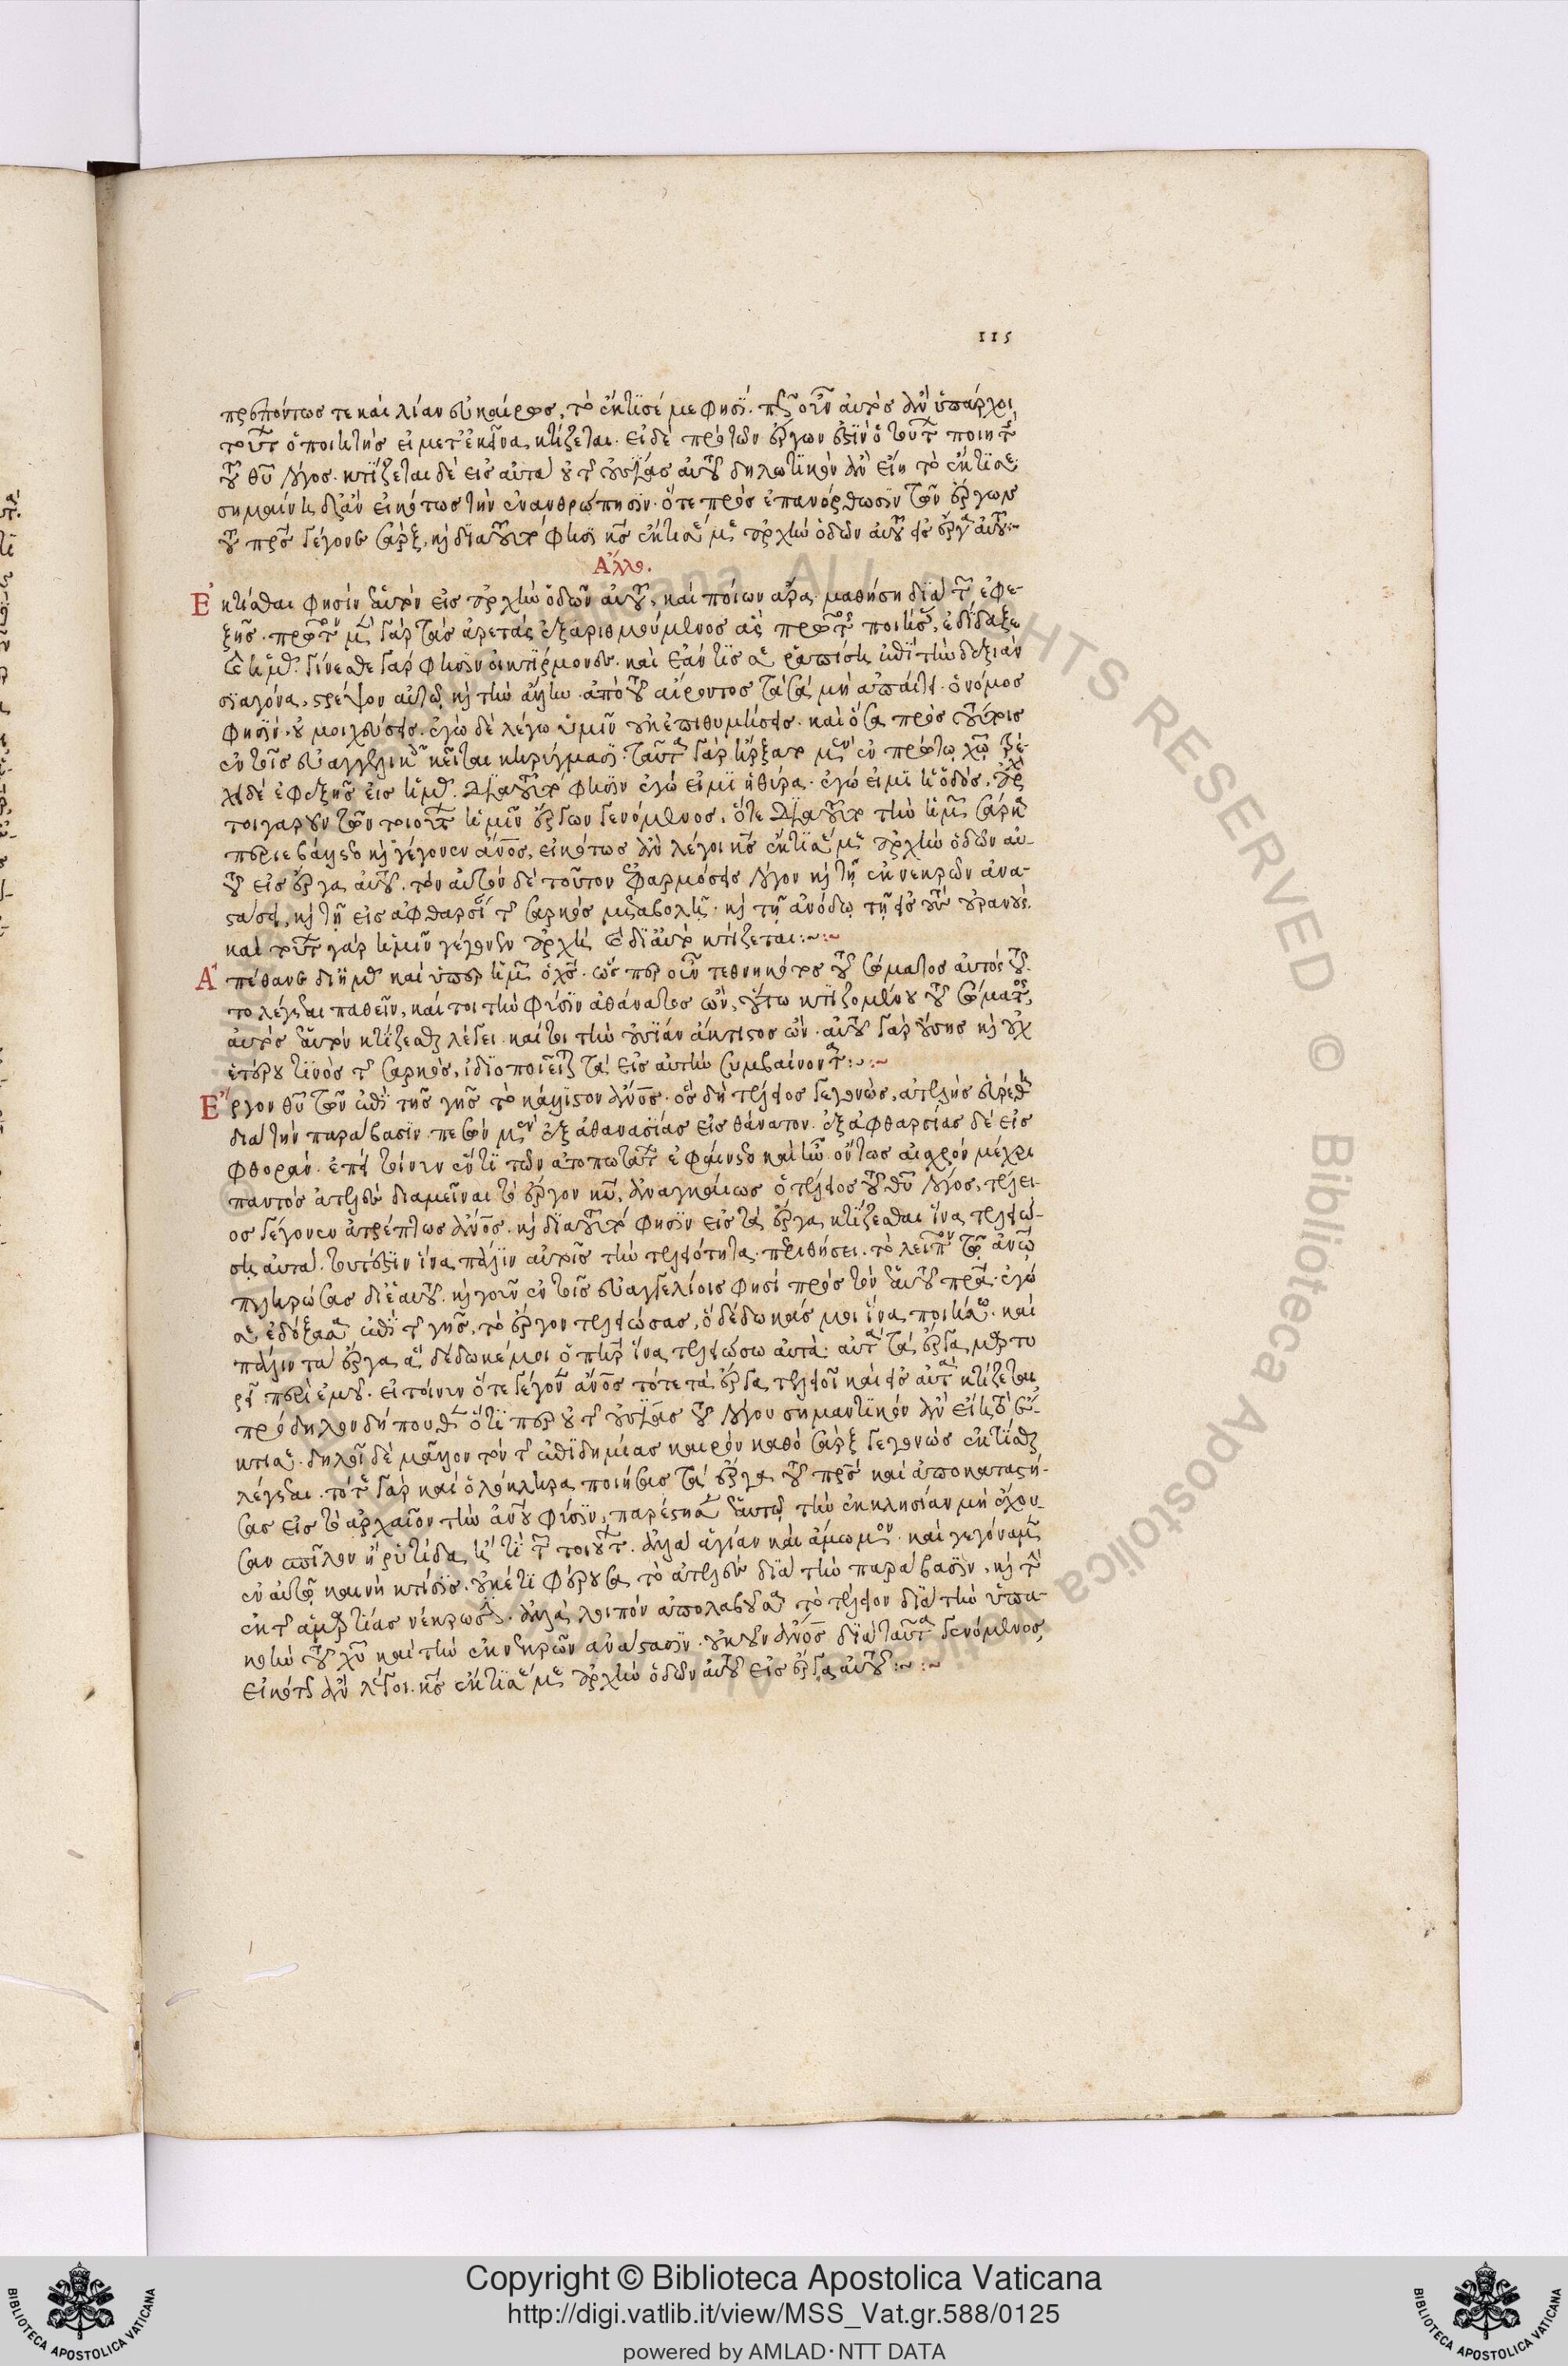 115
πρεπόντως τε καὶ λίαν εὐκαίρως, τὸ ἔκτισέ με φησί. πῶς οὖν αὐτὸς ἂν ὑπάρχοι
τούτων ὁ ποιητὴς εἰ μετ' ἐκεῖνα κτίζεται. εἰ δὲ πρὸ τῶν ἔργων ἐστὶν ὁ τούτων ποιητὴς
τοῦ θυ λόγος. κτίζεται δὲ εἰς αὐτὰ οὐ τῆς οὐσίας αὐτοῦ δηλωτικὸν ἂν εἴη τὸ ἔκτισε
σημαίνει δ' ἂν εἰκότως τὴν ἐνανθρώπησιν. ὅτε πρὸς ἐπανόρθωσιν τῶν ἔργων
τοῦ πρς γέγονε σάρξ, καὶ διὰ τοῦτό φησι κς ἔκτισέ με ἀρχὴν ὁδῶν αὐτοῦ εἰς ἔργα αὐτοῦ:~
Ἄλλο.
Ἐκτίσθαι φησὶν ἑαυτὸν εἰς ἀρχὴν ὁδῶν αὐτοῦ, καὶ ποίων ἄρα μαθήση διὰ τῶν ἐφε-
ξῆς. πρῶτον μὲν γὰρ τὰς ἀρετὰς ἐξαριθμούμενος ἃς πρῶτος ποιήσας, ἐδίδαξε
καὶ ἡμᾶς. γίνεσθε γάρ φησιν οἰκτίρμονες. καὶ ἐάν τίς σε ῥαπίση ἐπὶ τὴν δεξιὰν
σιαγόνα, στρέψον αὐτῷ καὶ τὴν ἄλλην. ἀπὸ τοῦ αἴροντος τὰ σὰ μὴ ἀπαίτει. ὁ νόμος
φησίν. οὐ μοιχεύσεις. ἐγὼ δὲ λέγω ὑμῖν οὐκ ἐπιθυμήσεις. καὶ ὅσα πρὸς τούτοις
ἐν τοῖς εὐαγγελικοῖς κεῖται κηρύγμασι. ταῦτα γὰρ ἤρξατο μὲν ἐν πρώτῳ χῷ τρέ-
χει δὲ ἐφεξῆς εἰς ἡμᾶς. διὰ τοῦτό φησιν ἐγώ εἰμι ἡ θύρα. ἐγώ εἰμι ἡ ὁδός. ἀρχὴ
τοιγαροῦν τῶν τοιούτων ἡμῖν ἔργων γενόμενος, ὅτε διὰ τοῦτο τὴν ἡμῶν σάρκα
περιεβάλλετο καὶ γέγονεν ἄνος, εἰκότως ἂν λέγοι κς ἔκτισέ με ἀρχὴν ὁδῶν αὐ-
τοῦ εἰς ἔργα αὐτοῦ. τὸν αὐτὸν δὲ τοῦτον ἐφαρμόσεις λόγον καὶ τῇ ἐκ νεκρῶν ἀνα-
στάσει, καὶ τῇ εἰς ἀφθαρσίαν τῆς σαρκὸς μεταβολῇ. καὶ τῇ ἀνόδῳ τῇ εἰς τοὺς οὐρανούς.
καὶ τούτων γὰρ ἡμῖν γέγονεν ἀρχὴ καὶ δι' αὐτὸ κτίζεται:~:~
Ἀπέθανε δι' ἡμᾶς καὶ ὑπὲρ ἡμῶν ὁ χς. ὥσπερ οὖν τεθνηκότος τοῦ σώματος αὐτὸς τοῦ-
το λέγεται παθεῖν, καί τοι τὴν φύσιν ἀθάνατος ὤν, οὕτω κτιζομένου τοῦ σώματος,
αὐτὸς ἑαυτὸν κτίζεσθαι λέγει. καί τοι τὴν οὐσίαν ἄκτιστος ὤν. αὐτοῦ γὰρ οὔσης καὶ οὐχ
ἑτέρου τινὸς τῆς σαρκός, ἰδιοποιεῖται τὰ εἰς αὐτὴν συμβαίνοντα:~:~
Ἔργον θυ τῶν ἐπὶ τῆς γῆς τὸ κάλλιστον ἄνος. ὃς δὴ τέλειος γεγονώς, ἀτελὴς εὑρέθη
διὰ τὴν παράβασιν. πεσὼν μὲν ἐξ ἀθανασίας εἰς θάνατον. ἐξ ἀφθαρσίας δὲ εἰς
φθοράν. ἐπεὶ τοίνυν ἕν τι τῶν ἀτοπωτάτων ἐφαίνετο καὶ ἦν οὕτως αἰσχρὸν μέχρι
παντὸς ἀτελὲς διαμεῖναι τὸ ἔργον κυ, ἀναγκαίως ὁ τέλειος τοῦ θυ λόγος, τέλει-
ος γέγονεν ἀτρέπτως ἄνος. καὶ διὰ τοῦτό φησιν εἰς τὰ ἔργα κτίζεσθαι ἵνα τελειώ-
σῃ αὐτά. τουτέστιν ἵνα πάλιν αὐτοῖς τὴν τελειότητα περιθήσει. τὸ λεῖπον τῷ ἀνῳ
πληρώσας δι' ἑαυτοῦ. καὶ γοῦν ἐν τοῖς εὐαγγελίοις φησὶ πρὸς τὸν ἑαυτοῦ πρα. ἐγώ
σε ἐδόξασα ἐπὶ τῆς γῆς, τὸ ἔργον τελειώσας, ὃ δέδωκάς μοι ἵνα ποιήσω. καὶ
πάλιν τὰ ἔργα ἃ δέδωκέ μοι ὁ πηρ ἵνα τελειώσω αὐτά. αὐτὰ τὰ ἔργα μαρτυ-
ρεῖ περὶ ἐμοῦ. εἰ τοίνυν ὅτε γέγονεν ἄνος τότε τὰ ἔργα τελειοῖ καὶ εἰς αὐτὰ κτίζεται
πρόδηλον δήπουθεν ὅτι περ οὐ τῆς οὐσίας τοῦ λόγου σημαντικὸν ἂν εἴη τὸ ἔ-
κτισε. δηλοῖ δὲ μᾶλλον τὸν τῆς ἐπιδημίας καιρὸν καθὸ σὰρξ γεγονὼς ἐκτίσθαι
λέγεται. τότε γὰρ καὶ ὁλόκληρα ποιήσας τὰ ἔργα τοῦ πρς καὶ ἀποκαταστή-
σας εἰς τὸ ἀρχαῖον τὴν ἀνου φύσιν, παρέστησεν ἑαυτῷ τὴν ἐκκλησίαν μὴ ἔχου-
σαν σπῖλον ἢ ῥυτίδα, ἤ τι τῶν τοιούτων. ἀλλὰ ἁγίαν καὶ ἄμωμον. καὶ γεγόναμεν
ἐν αὐτῷ καινὴ κτίσις. οὐκέτι φέρουσα τὸ ἀτελὲς διὰ τὴν παράβασιν, καὶ τὴν
ἐκ τῆς ἁμαρτίας νέκρωσιν. ἀλλὰ λοιπὸν ἀπολαβοῦσα τὸ τέλειον διὰ τὴν ὑπα-
κοὴν τοῦ χυ καὶ τὴν ἐκ νεκρῶν ἀνάστασιν. οὐκοῦν ἄνος διὰ ταῦτα γενόμενος,
εἰκότως ἂν λέγοι. κς ἔκτισέ με ἀρχὴν ὁδῶν αὐτοῦ εἰς ἔργα αὐτοῦ:~:~
ALL RIGHTS RESERVED © Biblioteca Apostolica Vaticana
Copyright © Biblioteca Apostolica Vaticana
http://digi.vatlib.it/view/MSS_Vat.gr.588/0125
powered by AMLAD·NTT DATA
BIBLIOTECA APOSTOLICA VATICANA
BIBLIOTECA APOSTOLICA VATICANA